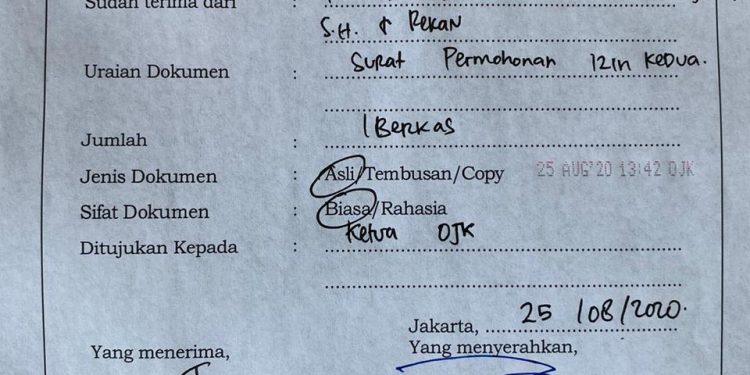 Sudah terima dari
S.H. & Rekan
Uraian Dokumen : Surat Permohonan Izin Kedua.
Jumlah : 1 Berkas
Jenis Dokumen : Asli/Tembusan/Copy 25 AUG'20 13:42 OJK
Sifat Dokumen : Biasa/Rahasia
Ditujukan Kepada : Ketua OJK
Jakarta, 25/08/2020.
Yang menerima, Yang menyerahkan,